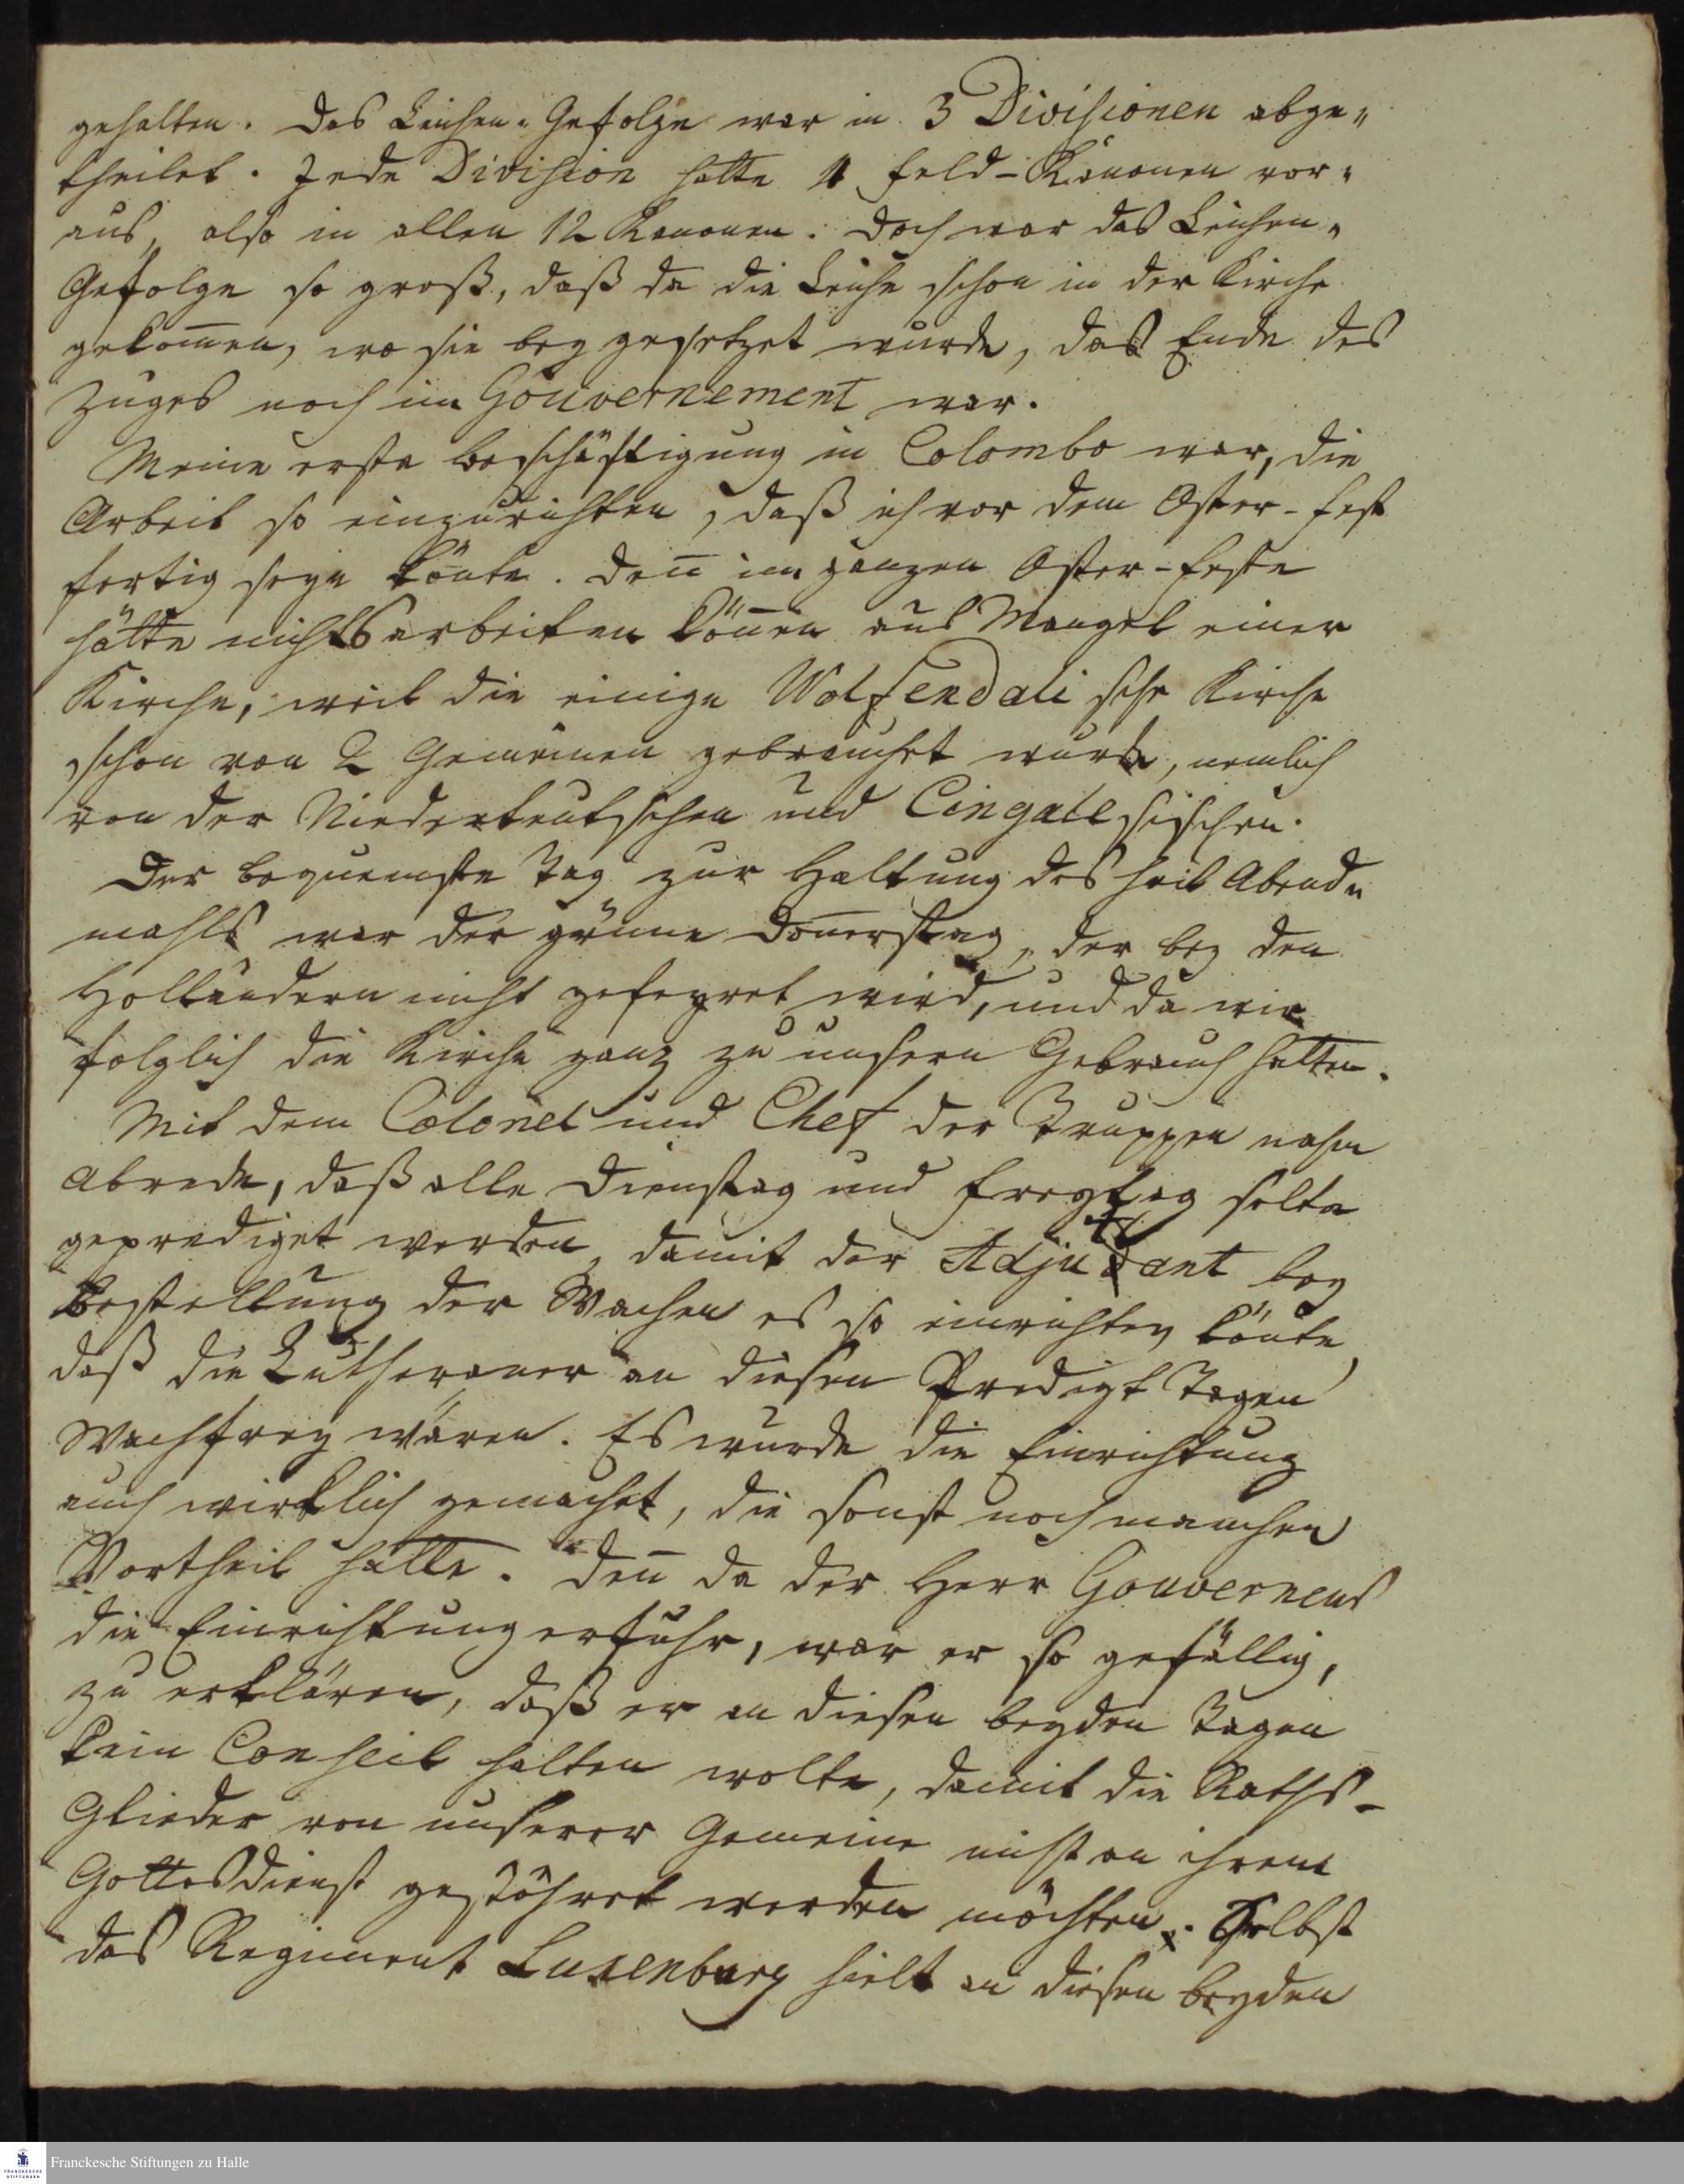 gehalten. Das Leichen-Gefolge war in 3 Divisionen abge-
theilet. Jede Division hatte 4 Feld-Kanonen vor-
aus, also in allen 12 Kanonen. Doch war das Leichen-
Gefolge so groß, daß da die Leiche schon in der Kirche
gekom̅en, wo sie bey gesetzet wurde, das Ende des
Zuges noch im Gouvernement war.
Meine erste Beschäftigung in Colombo war, die
Arbeit so einzurichten, daß ich vor dem Oster-Fest
fertig seyn kön̅te. Den̅ im ganzen Oster-Feste
hätte nichts arbeiten kön̅en aus Mangel einer
Kirche, weil die einige Wolfendalische Kirche
schon von 2 Gemeinen gebrauchet wurde, nemlich
von der Niederteutschen und Cingalesischen.
Der bequemste Tag zur Haltung des heil Abend-
mahls war der grüne Don̅erstag, der bey den
Holländern nicht gefeyret wird, und da wir
folglich die Kirche ganz zu unsern Gebrauch hatten.
Mit dem Colonel und Chef der Truppen nahm
Abrede, daß alle Dienstag und Freytag solte
geprediget werden, damit der Adjutant bey
Bestellung der Wachen es so einrichten kön̅te,
daß die Lutheraner an diesen Predigt Tagen
Wachfrey wären. Es wurde die Einrichtung
auch wirklich gemachet, die sonst noch manchen
Vortheil hatte. Den̅ da der Herr Gouverneur
die Einrichtung erfuhr, war er so gefällig,
zu erklären, daß er an diesen beyden Tagen
kein Conseil halten wolte, damit die Raths-
Glieder von unserer Gemeine nicht an ihrem
Gottesdienst gestöhret werden möchten. Selbst
das Regiment Luxenburg hielt an diesen beyden
Franckesche Stiftungen zu Halle
FRANCKESCHE STIFTUNGEN